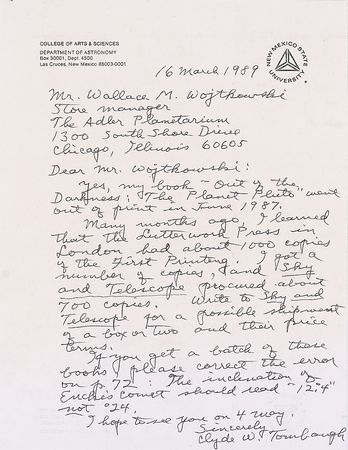 COLLEGE OF ARTS & SCIENCES
DEPARTMENT OF ASTRONOMY
Box 30001, Dept. 4500
Las Cruces, New Mexico 88003-0001
NEW MEXICO STATE UNIVERSITY
16 March 1989
Mr. Wallace M. Wojtkowski
Store manager
The Adler Planetarium
1300 South Shore Drive
Chicago, Illinois 60605
Dear Mr. Wojtkowski:
Yes, my book "Out of the
Darkness: The Planet Pluto" went
out of print in June 1987.
Many months ago, I learned
that the Lutterwork Press in
London had about 1000 copies
of the First Printing. I got a
number of copies, and Sky
and Telescope procured about
700 copies. Write to Sky and
Telescope for a possible shipment
of a box or two and their price
terms.
If you get a batch of these
books, please correct the error
on p. 72: The inclination of
Encke's Comet should read "12.°4"
not °24.
I hope to see you on 4 Way.
Sincerely
Clyde W. Tombaugh